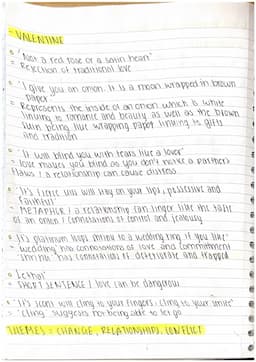 - VALENTINE
"Not a red rose or a satin heart"
- Rejection of traditional love
"I give you an onion. It is a moon wrapped in brown
paper"
- Represents the inside of an onion which is white
linking to romance and beauty as well as the brown
skin being like wrapping paper linking to gifts
and tradition
"It will blind you with tears like a lover"
- love makes you blind as you don't notice a partners
flaws / a relationship can cause distress
"It's fierce kiss will stay on your lips, possessive and
faithful"
- METAPHOR / a relationship can linger like the taste
of an onion / connotations of control and jealousy
"It's platinum loops shrink to a wedding ring if you like"
- wedding has connotations of love and commitment
- shrink has connotation of and trapped
"Lethal"
- SHORT SENTENCE / love can be dangerous
"It's scent will cling to your fingers / cling to your knife"
- "Cling" suggests not being able to let go
THEMES = CHANGE, RELATIONSHIP, CONFLICT